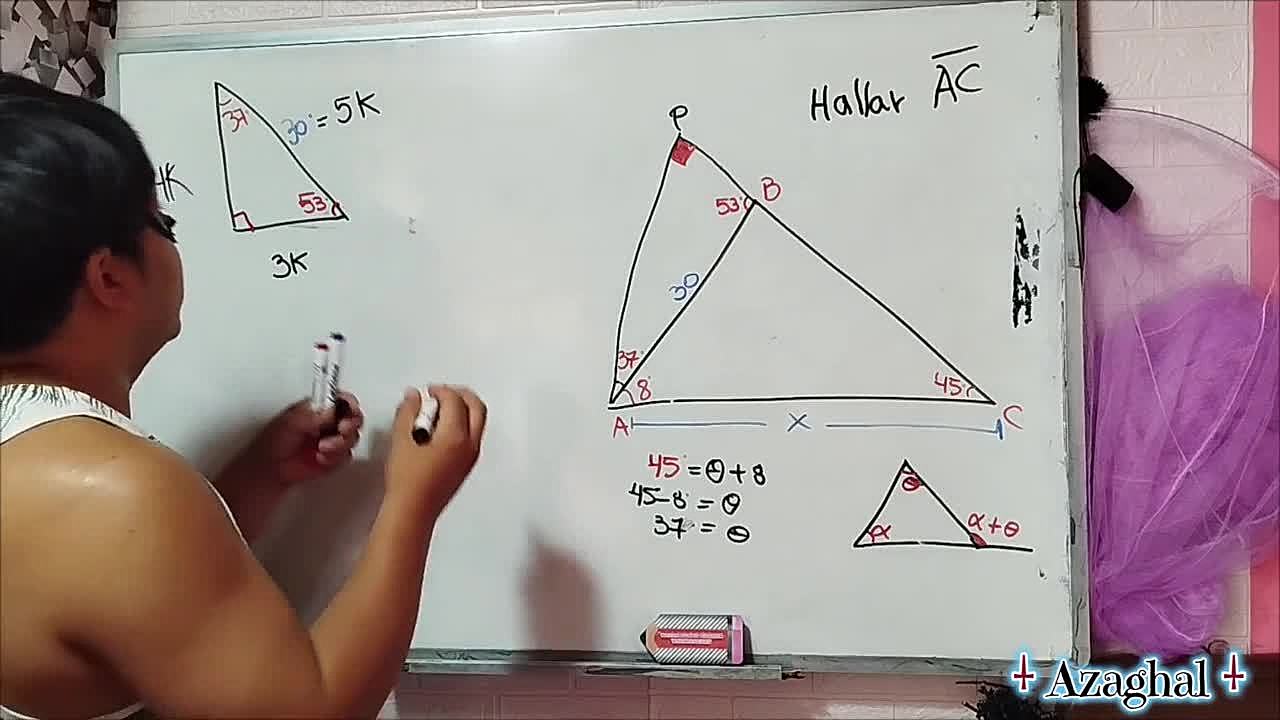 Hallar AC
37°
30 = 5K
4K
53
3K
P
B
53°
30
37°
8°
45°
A
x
C
45° = θ + 8
45 - 8° = θ
37° = θ
θ
α
α + θ
Azaghal